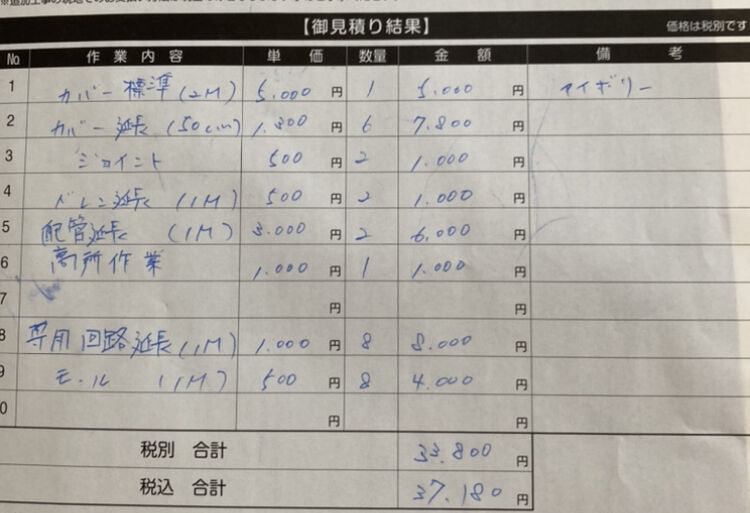 【御見積り結果】 価格は税別です
No. 作業内容 単価 数量 金額 備考
1 カバー標準(2M) 5.000円 1 5.000円 アイボリー
2 カバー延長(50cm) 1.300円 6 7.800円
3 ジョイント 500円 2 1.000円
4 ドレン延長(1M) 500円 2 1.000円
5 配管延長(1M) 3.000円 2 6.000円
6 高所作業 1.000円 1 1.000円
7 円 円
8 専用回路延長(1M) 1.000円 8 8.000円
9 モール(1M) 500円 8 4.000円
0 円 円
税別 合計 33.800円
税込 合計 37.180円